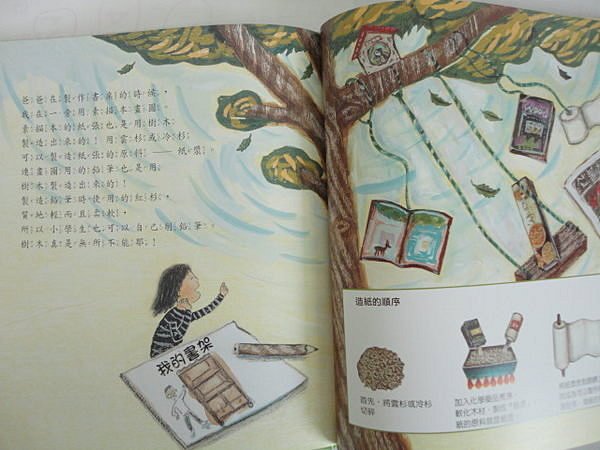 爸爸在製作書桌的時候，
我在一旁用素描本畫圖。
素描本的紙張也是用樹木
製造出來的！用雲杉或冷杉
可以製造紙張的原料——紙漿。
連畫圖用的鉛筆也是用
樹木製造出來的！
製造鉛筆時使用的紅杉，
質地輕而且柔軟，
所以小學生也可以自己削鉛筆。
樹木真是無所不能耶！
我的書架
造紙的順序
首先，將雲杉或冷杉
切碎
加入化學藥品煮沸，
軟化木材，製成
紙的原料就是紙漿。